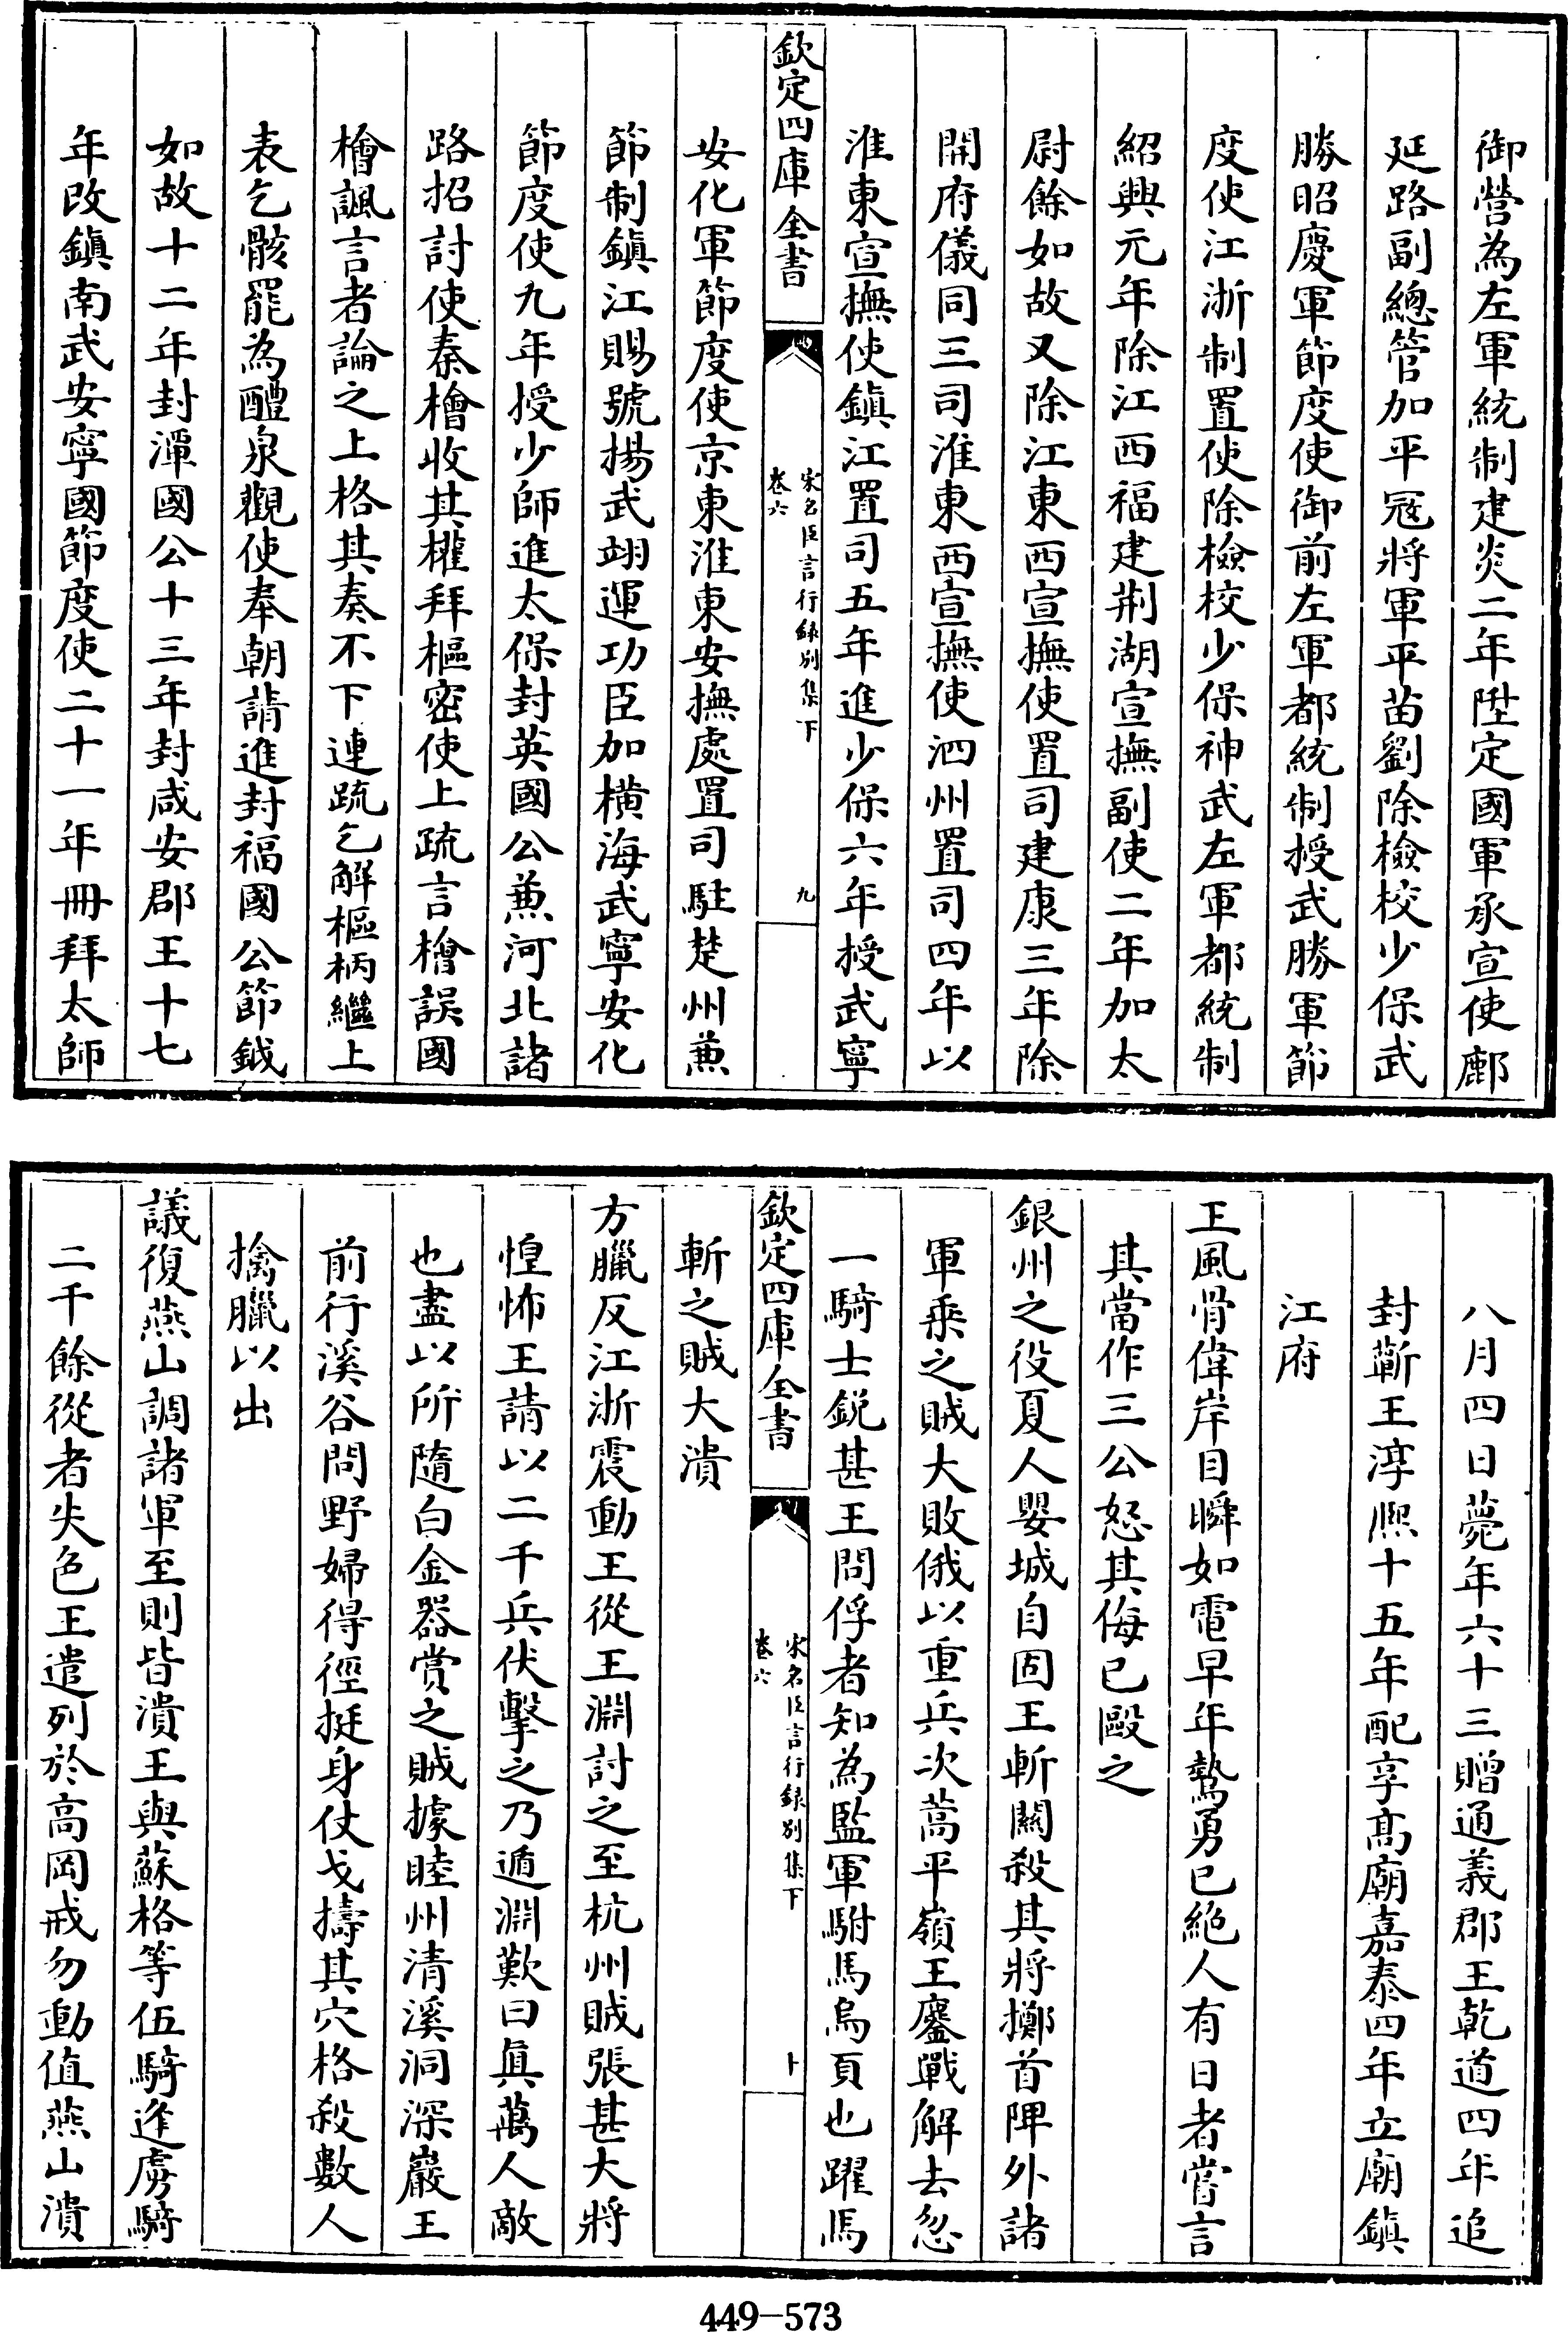 御營為左軍統制建炎二年陞定國軍承宣使鄜
延路副總管加平寇將軍平苗劉除檢校少保武
勝昭慶軍節度使御前左軍都統制授武勝軍節
度使江浙制置使除檢校少保神武左軍都統制
紹興元年除江西福建荆湖宣撫副使二年加太
尉餘如故又除江東西宣撫使置司建康三年除
開府儀同三司淮東西宣撫使泗州置司四年以
淮東宣撫使鎮江置司五年進少保六年授武寧
欽定四庫全書
宋名臣言行錄別集下
卷六
九
安化軍節度使京東淮東安撫處置司駐楚州兼
節制鎮江賜號揚武翊運功臣加橫海武寧安化
節度使九年授少師進太保封英國公兼河北諸
路招討使秦檜收其權拜樞密使上疏言檜誤國
檜諷言者論之上格其奏不下連疏乞解樞柄繼上
表乞骸罷為醴泉觀使奉朝請進封福國公節鉞
如故十二年封潭國公十三年封咸安郡王十七
年改鎮南武安寧國節度使二十一年冊拜太師
八月四日薨年六十三贈通義郡王乾道四年追
封蘄王淳熙十五年配享高廟嘉泰四年立廟鎮
江府
王風骨偉岸目瞬如電早年驁勇已絶人有日者嘗言
其當作三公怒其侮已毆之
銀州之役夏人嬰城自固王斬關殺其將擲首陴外諸
軍乘之賊大敗俄以重兵次蒿平嶺王鏖戰解去忽
一騎士鋭甚王問俘者知為監軍駙馬烏頁也躍馬
欽定四庫全書
宋名臣言行錄別集下
卷六
十
斬之賊大潰
方臘反江浙震動王從王淵討之至杭州賊張甚大將
惶怖王請以二千兵伏擊之乃遁淵歎曰眞萬人敵
也盡以所隨白金器賞之賊據睦州清溪洞深巖王
前行溪谷問野婦得徑挺身仗戈擣其穴格殺數人
擒臘以出
議復燕山調諸軍至則皆潰王與蘇格等伍騎逢虜騎
二千餘從者失色王遣列於高岡戒勿動值燕山潰
449-573